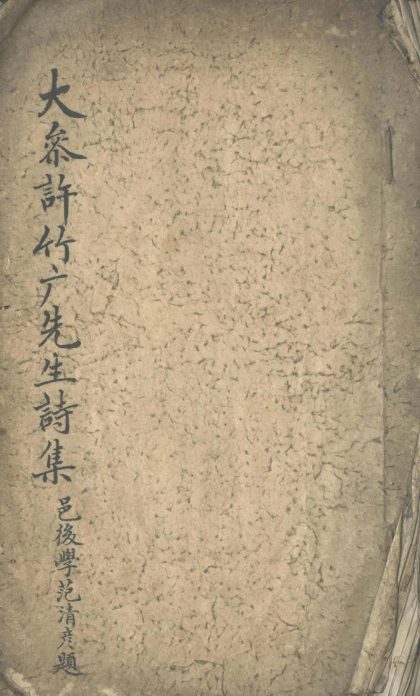 大叅許竹广先生詩集
邑後學范清彦題